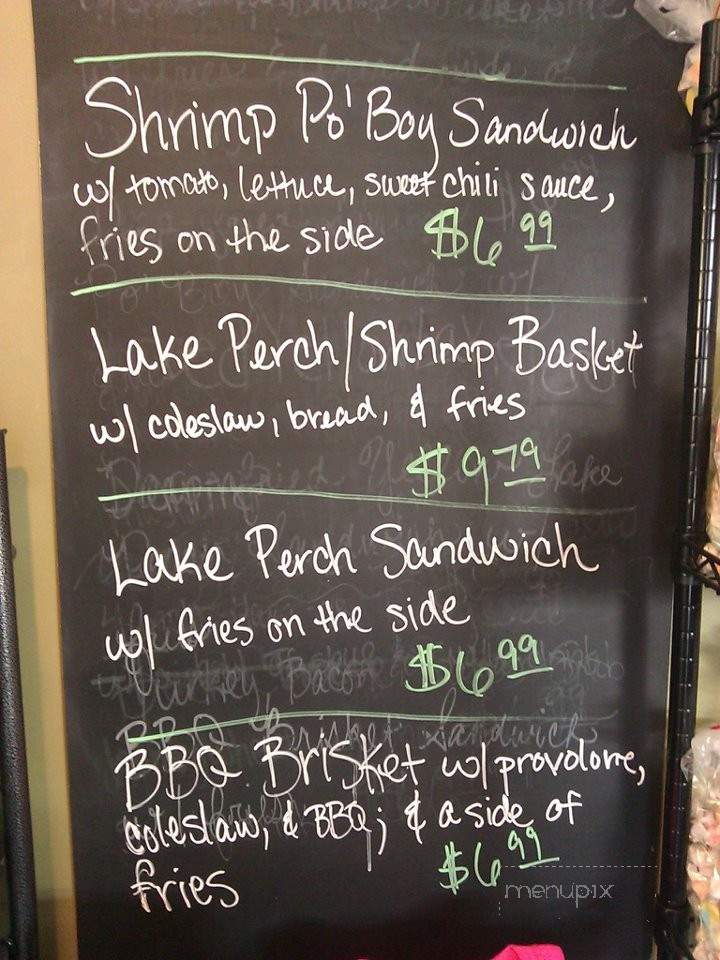 Shrimp Po' Boy Sandwich
w/ tomato, lettuce, sweet chili sauce,
fries on the side $6 99
Lake Perch/Shrimp Basket
w/ coleslaw, bread, & fries
$9 79
Lake
Lake Perch Sandwich
w/ fries on the side
$6 99
Turkey, Bacon
BBQ Brisket Sandwich
BBQ Brisket w/ provolone,
coleslaw, & BBQ; & a side of
fries $6 99
menupix